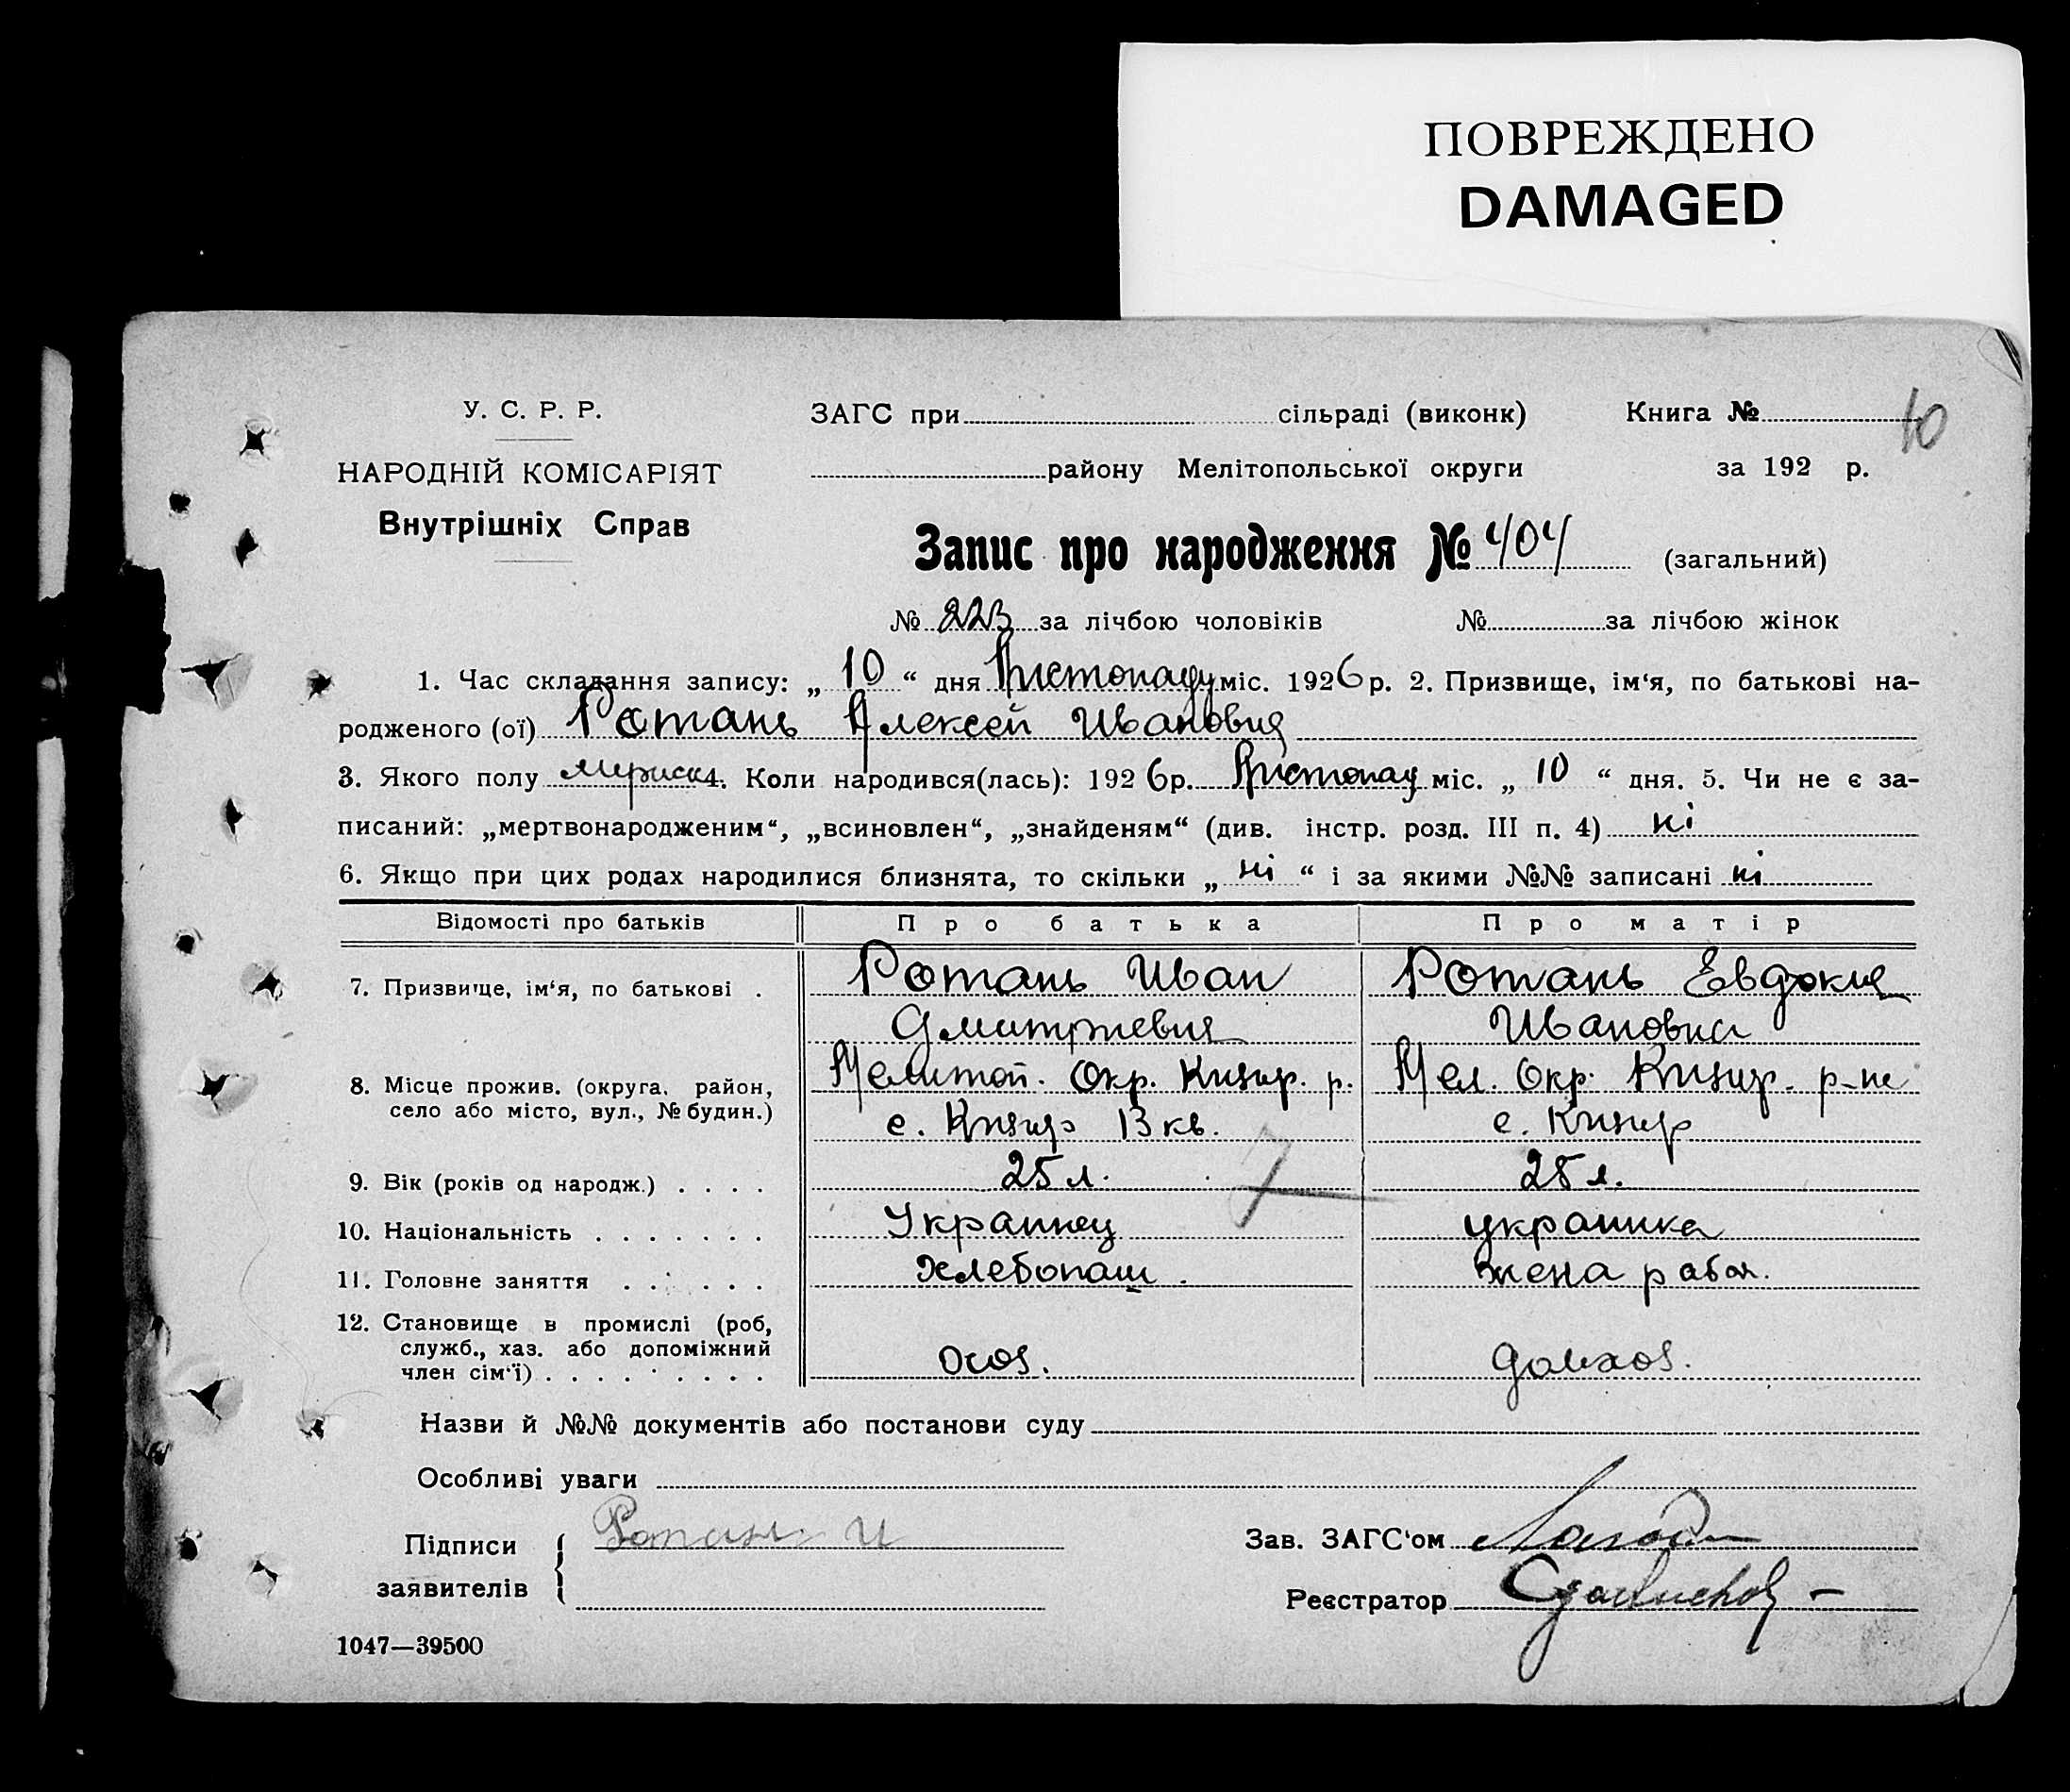 ПОВРЕЖДЕНО
DAMAGED
У. С. Р. Р.
НАРОДНІЙ КОМІСАРІЯТ
Внутрішніх Справ
ЗАГС при сільраді (виконк)
району Мелітопольської округи
Книга №
за 192 р.
10
Запис про народження № 404 (загальний)
№ 223 за лічбою чоловіків № за лічбою жінок
1. Час складання запису: „ 10 “ дня Листопаду міс. 1926 р. 2. Призвище, ім‘я, по батькові на-
родженого (ої) Ротань Алексей Иванович
3. Якого полу 4. Коли народився(лась): 1926 р. Листопад міс. „ 10 “ дня. 5. Чи не є за-
писаний: „мертвонародженим“, „всиновлен“, „знайденям“ (див. інстр. розд. III п. 4) ні
6. Якщо при цих родах народилися близнята, то скільки „ ні “ і за якими №№ записані ні
Відомості про батьків Про батька Про матір
7. Призвище, ім‘я, по батькові . Ротань Иван Ротань Евдокия
Дмитриевич Ивановна
8. Місце прожив. (округа, район, село або місто, вул., № будин.) Мелитоп. Окр. Кизияр. р. Мел. Окр. Кизияр. р-на
с. Кизияр 13 кв. с. Кизияр
9. Вік (років од народж.) . . . . 25 л. 25 л.
7
10. Національність . . . . . . . Украинец украинка
11. Головне заняття . . . . . . Хлебопаш. жена рабоч.
12. Становище в промислі (роб,
служб., хаз. або допоміжний
член сім‘ї) . . . . . . . . . домхоз.
Назви й №№ документів або постанови суду
Особливі уваги
Підписи
заявителів
Ротань И
Зав. ЗАГС‘ом
Реєстратор
1047—39500